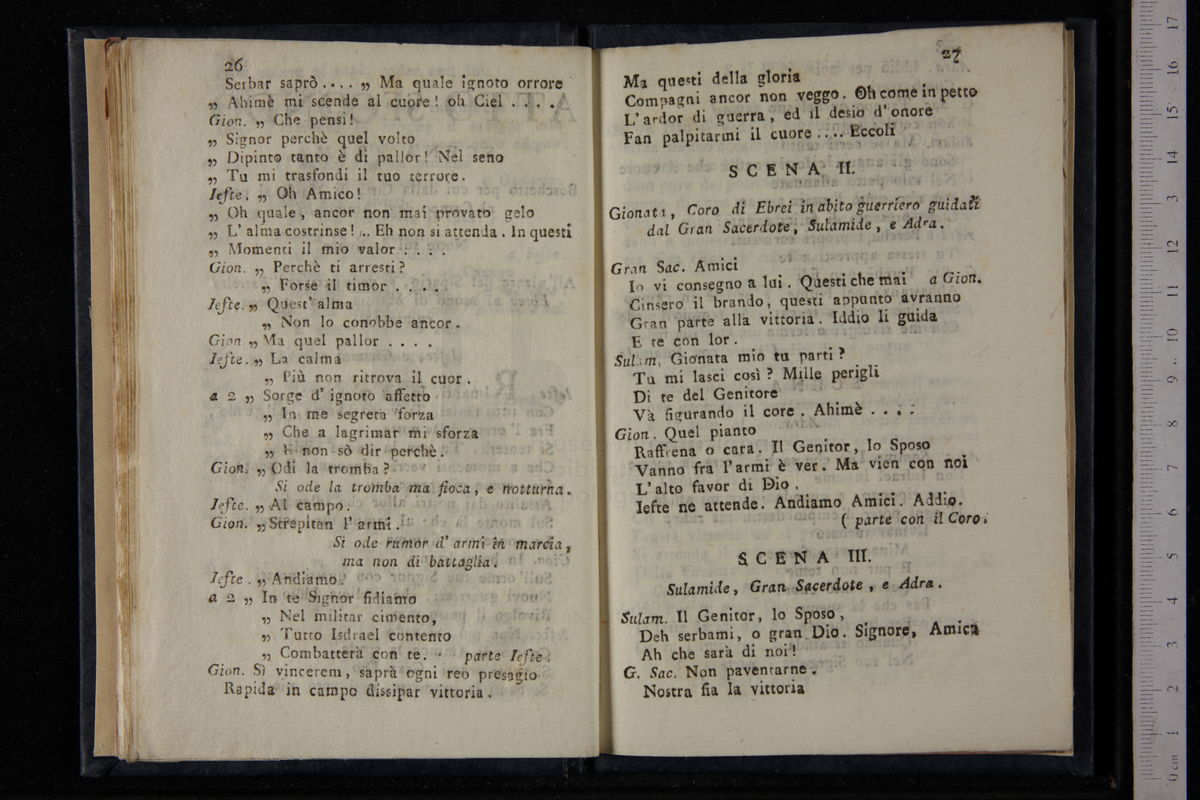 26
Serbar saprò.... „ Ma quale ignoto orrore
„ Ahimè mi scende al cuore! oh Ciel ....
Gion. „ Che pensi!
„ Signor perchè quel volto
„ Dipinto tanto è di pallor! Nel seno
„ Tu mi trasfondi il tuo terrore.
Iefte. „ Oh Amico!
„ Oh quale, ancor non mai provato gelo
„ L' alma costrinse! ... Eh non si attenda. In questi
„ Momenti il mio valor ....
Gion. „ Perchè ti arresti?
„ Forse il timor ....
Iefte. „ Quest' alma
„ Non lo conobbe ancor.
Gion „ Ma quel pallor ....
Iefte. „ La calma
„ Più non ritrova il cuor.
a 2 „ Sorge d' ignoto affetto
„ In me segreta forza
„ Che a lagrimar mi sforza
„ E non sò dir perchè.
Gion. „ Odi la tromba?
Si ode la tromba ma fioca, e notturna.
Iefte. „ Al campo.
Gion. „ Strepitan l' armi.
Si ode rumor d' armi in marcia,
ma non di battaglia.
Iefte. „ Andiamo.
a 2 „ In te Signor fidiamo
„ Nel militar cimento,
„ Tutto Isdrael contento
„ Combatterà con te. parte Iefte.
Gion. Sì vincerem, saprà ogni reo presagio
Rapida in campo dissipar vittoria.
27
Ma questi della gloria
Compagni ancor non veggo. Oh come in petto
L' ardor di guerra, ed il desio d' onore
Fan palpitarmi il cuore .... Eccoli
SCENA II.
Gionata, Coro di Ebrei in abito guerriero guidati
dal Gran Sacerdote, Sulamide, e Adra.
Gran Sac. Amici
Io vi consegno a lui. Questi che mai a Gion.
Cinsero il brando, questi appunto avranno
Gran parte alla vittoria. Iddio li guida
E te con lor.
Sulam, Gionata mio tu parti?
Tu mi lasci così? Mille perigli
Di te del Genitore
Và figurando il core. Ahimè ....
Gion. Quel pianto
Raffrena o cara. Il Genitor, lo Sposo
Vanno fra l' armi è ver. Ma vien con noi
L' alto favor di Dio.
Iefte ne attende. Andiamo Amici. Addio.
( parte con il Coro.
SCENA III.
Sulamide, Gran Sacerdote, e Adra.
Sulam. Il Genitor, lo Sposo,
Deh serbami, o gran Dio. Signore, Amica
Ah che sarà di noi!
G. Sac. Non paventarne.
Nostra fia la vittoria
17
16
15
14
3
12
11
10
9
8
7
6
5
4
3
2
1
0 cm